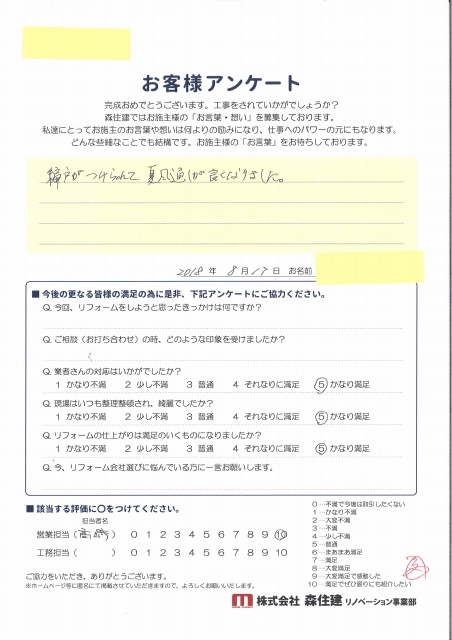 お客様アンケート
完成おめでとうございます。工事をされていかがでしょうか？
森住建ではお施主様の「お言葉・想い」を募集しております。
私達にとってお施主のお言葉や想いは何よりの励みになり、仕事へのパワーの元にもなります。
どんな些細なことでも結構です。お施主様の「お言葉」をお待ちしております。
網戸がつけられて 夏風通しが良くなりました。
2018 年 8 月 17 日 お名前
■ 今後の更なる皆様の満足の為に是非、下記アンケートにご協力ください。
Q. 今回、リフォームをしようと思ったきっかけは何ですか？
Q. ご相談（お打ち合わせ）の時、どのような印象を受けましたか？
Q. 業者さんの対応はいかがでしたか？
1 かなり不満 2 少し不満 3 普通 4 それなりに満足 5 かなり満足
Q. 現場はいつも整理整頓され、綺麗でしたか？
1 かなり不満 2 少し不満 3 普通 4 それなりに満足 5 かなり満足
Q. リフォームの仕上がりは満足のいくものになりましたか？
1 かなり不満 2 少し不満 3 普通 4 それなりに満足 5 かなり満足
Q. 今、リフォーム会社選びに悩んでいる方に一言お願いします。
■ 該当する評価に〇をつけてください。
担当者名
営業担当（ ） 0 1 2 3 4 5 6 7 8 9 10
工務担当（ ） 0 1 2 3 4 5 6 7 8 9 10
0 …不満で今後は取引したくない
1 …かなり不満
2 …大変不満
3 …不満
4 …少し不満
5 …普通
6 …まあまあ満足
7 …満足
8 …大変満足
9 …大変満足で感動した
10 …満足でぜひ振りにも紹介したい
ご協力をいただき、ありがとうございます。
※ホームページ等に匿名にて掲載させていただきますので、よろしくお願いいたします。
株式会社 森住建 リノベーション事業部